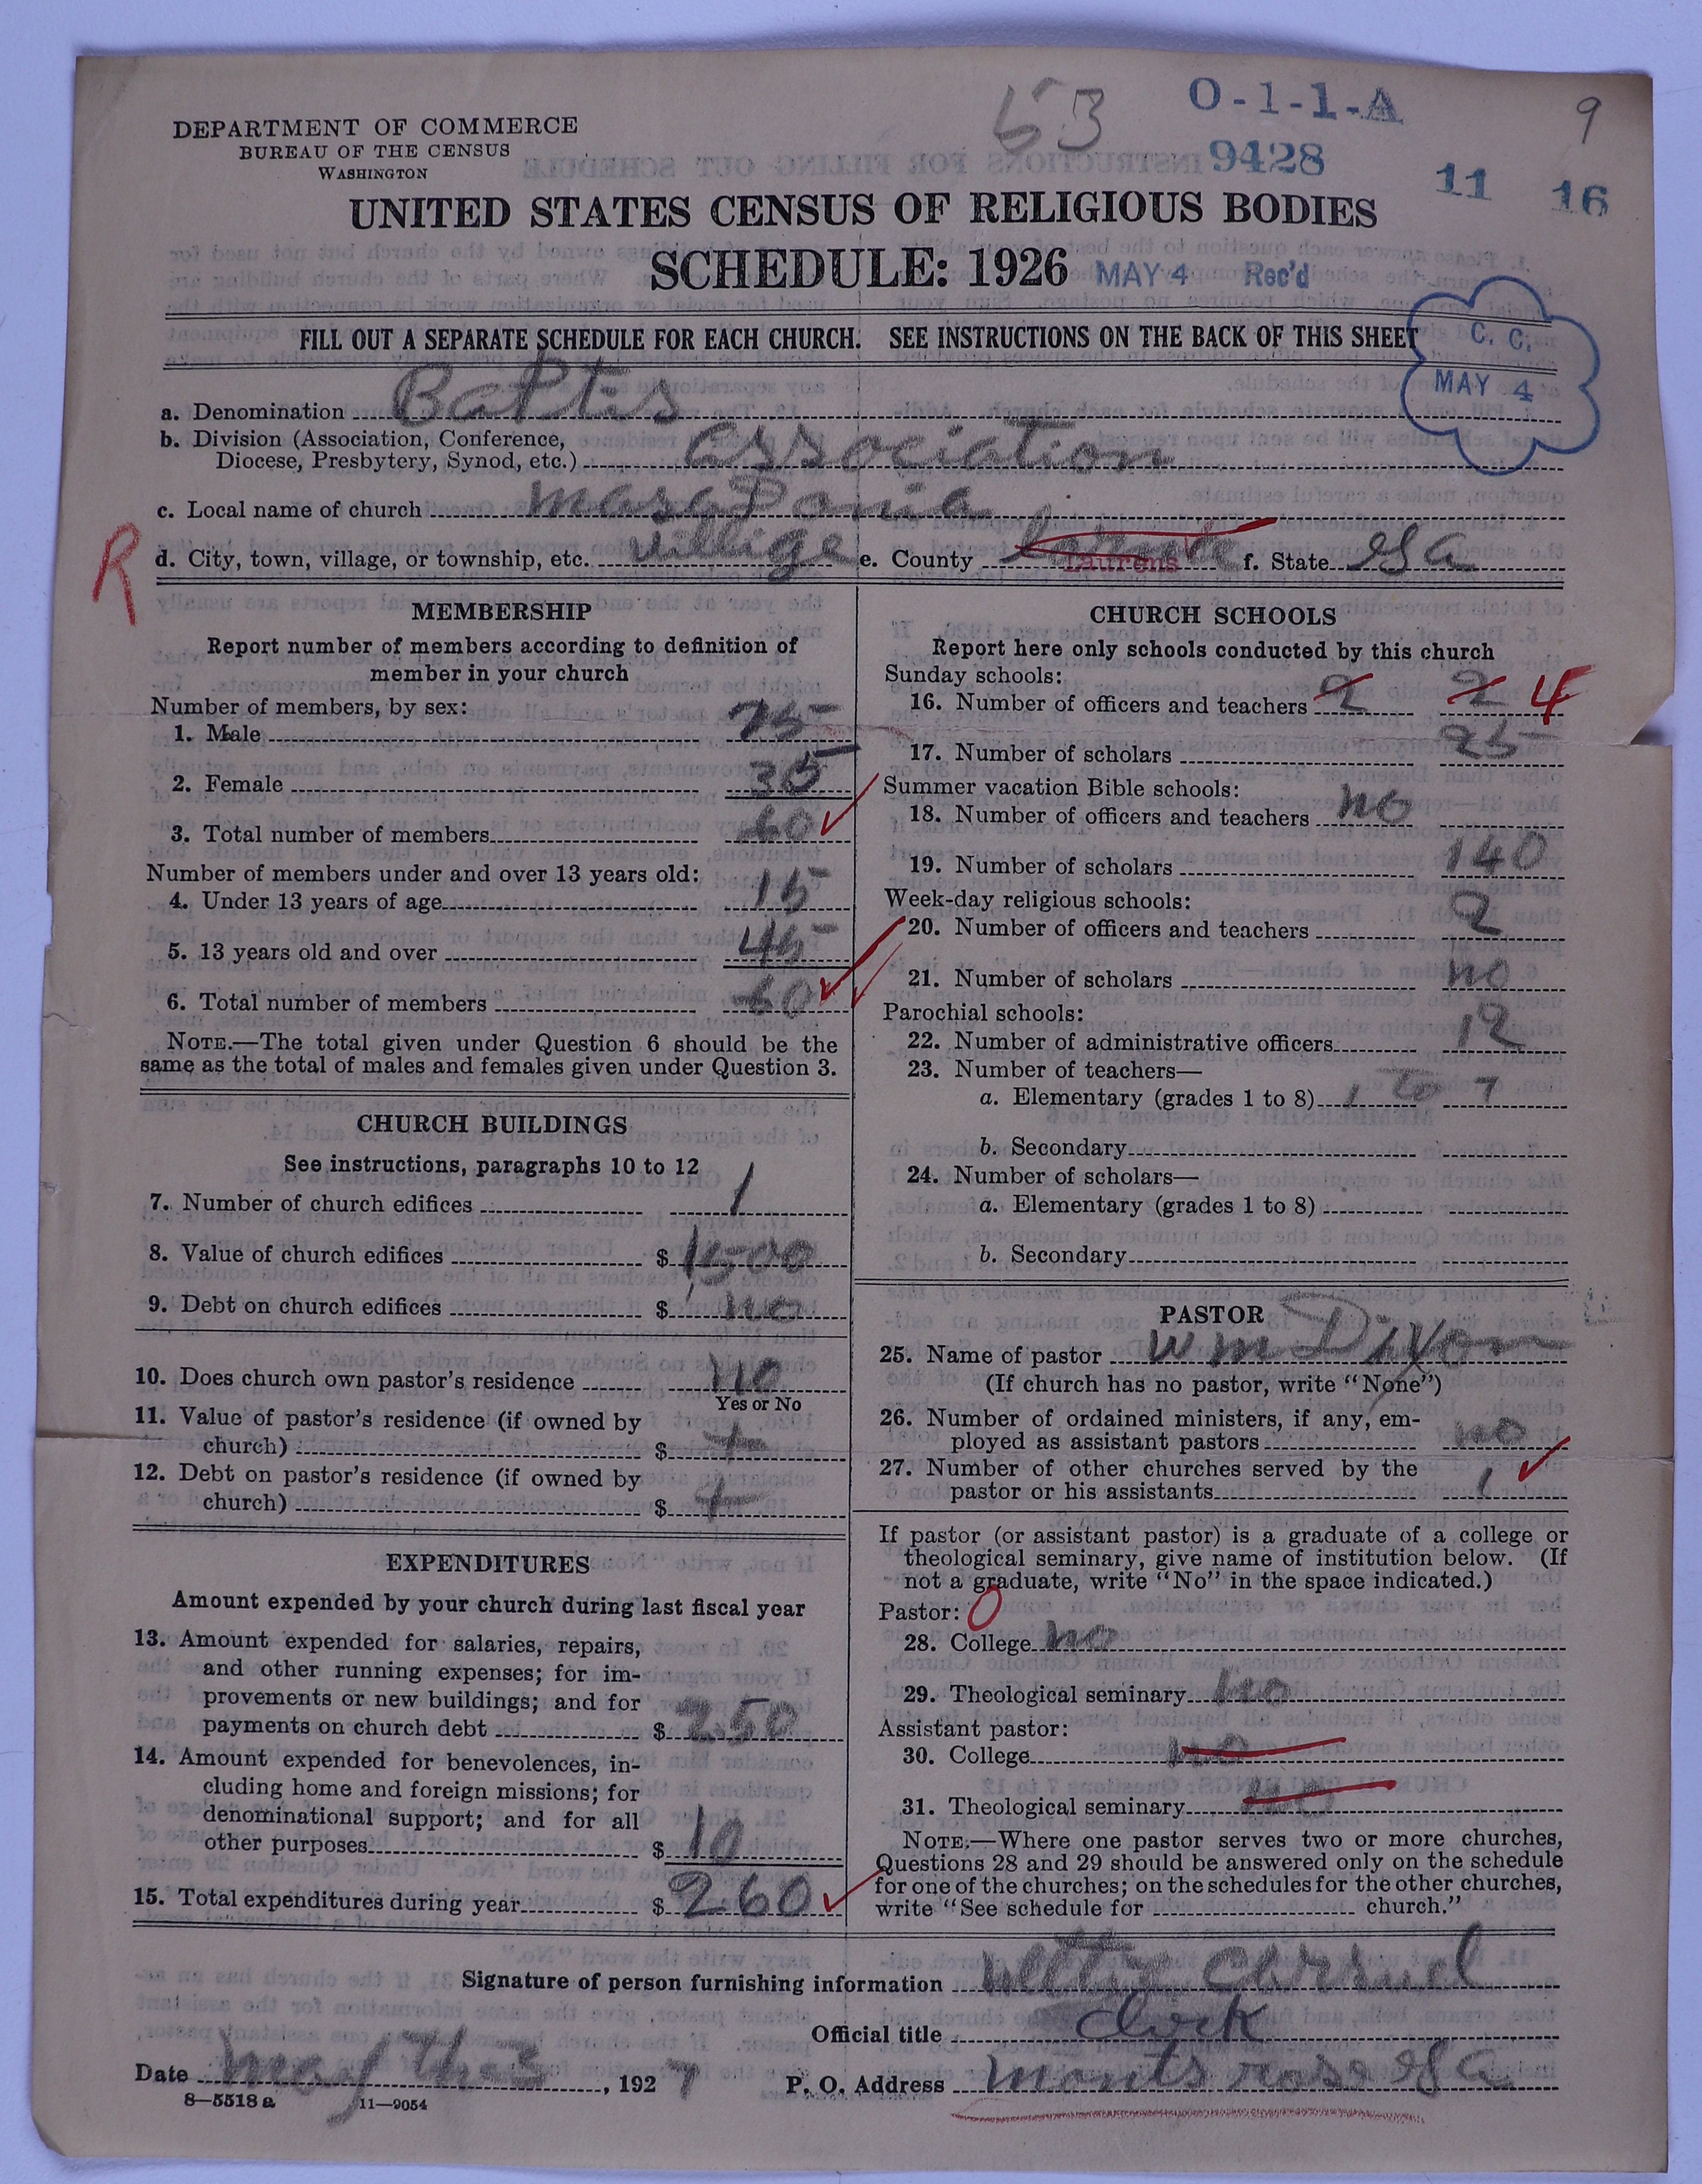 53
O-1-1-A
9
DEPARTMENT OF COMMERCE
BUREAU OF THE CENSUS
WASHINGTON
9428
11 16
UNITED STATES CENSUS OF RELIGIOUS BODIES
SCHEDULE: 1926 MAY 4 Rec'd
FILL OUT A SEPARATE SCHEDULE FOR EACH CHURCH. SEE INSTRUCTIONS ON THE BACK OF THIS SHEET
C. C.
MAY 4
a. Denomination Baptis
b. Division (Association, Conference,
Diocese, Presbytery, Synod, etc.) association
c. Local name of church masadonia
R
d. City, town, village, or township, etc. villige e. County Laurens f. State Ga
MEMBERSHIP
Report number of members according to definition of
member in your church
Number of members, by sex:
1. Male 25
2. Female 35
3. Total number of members 60
Number of members under and over 13 years old:
4. Under 13 years of age 15
5. 13 years old and over 45
6. Total number of members 60
NOTE.—The total given under Question 6 should be the
same as the total of males and females given under Question 3.
CHURCH BUILDINGS
See instructions, paragraphs 10 to 12
7. Number of church edifices 1
8. Value of church edifices $ 1500
9. Debt on church edifices $ no
10. Does church own pastor's residence no
Yes or No
11. Value of pastor's residence (if owned by
church) $
12. Debt on pastor's residence (if owned by
church) $
EXPENDITURES
Amount expended by your church during last fiscal year
13. Amount expended for salaries, repairs,
and other running expenses; for im-
provements or new buildings; and for
payments on church debt $ 250
14. Amount expended for benevolences, in-
cluding home and foreign missions; for
denominational support; and for all
other purposes $ 10
15. Total expenditures during year $ 260
CHURCH SCHOOLS
Report here only schools conducted by this church
Sunday schools:
16. Number of officers and teachers 2 2 4
17. Number of scholars 25
Summer vacation Bible schools:
18. Number of officers and teachers no
19. Number of scholars 140
Week-day religious schools:
20. Number of officers and teachers 2
21. Number of scholars no
Parochial schools:
22. Number of administrative officers 12
23. Number of teachers—
a. Elementary (grades 1 to 8) 1 to 7
b. Secondary
24. Number of scholars—
a. Elementary (grades 1 to 8)
b. Secondary
PASTOR
25. Name of pastor Wm Dixon
(If church has no pastor, write "None")
26. Number of ordained ministers, if any, em-
ployed as assistant pastors no
27. Number of other churches served by the
pastor or his assistants 1
If pastor (or assistant pastor) is a graduate of a college or
theological seminary, give name of institution below. (If
not a graduate, write "No" in the space indicated.)
Pastor: 0
28. College no
29. Theological seminary no
Assistant pastor:
30. College no
31. Theological seminary no
NOTE.—Where one pastor serves two or more churches,
Questions 28 and 29 should be answered only on the schedule
for one of the churches; on the schedules for the other churches,
write "See schedule for church."
Signature of person furnishing information
Official title clerk
Date may th 3, 1927 P. O. Address monts rose Ga
8—5518 a 11—9054